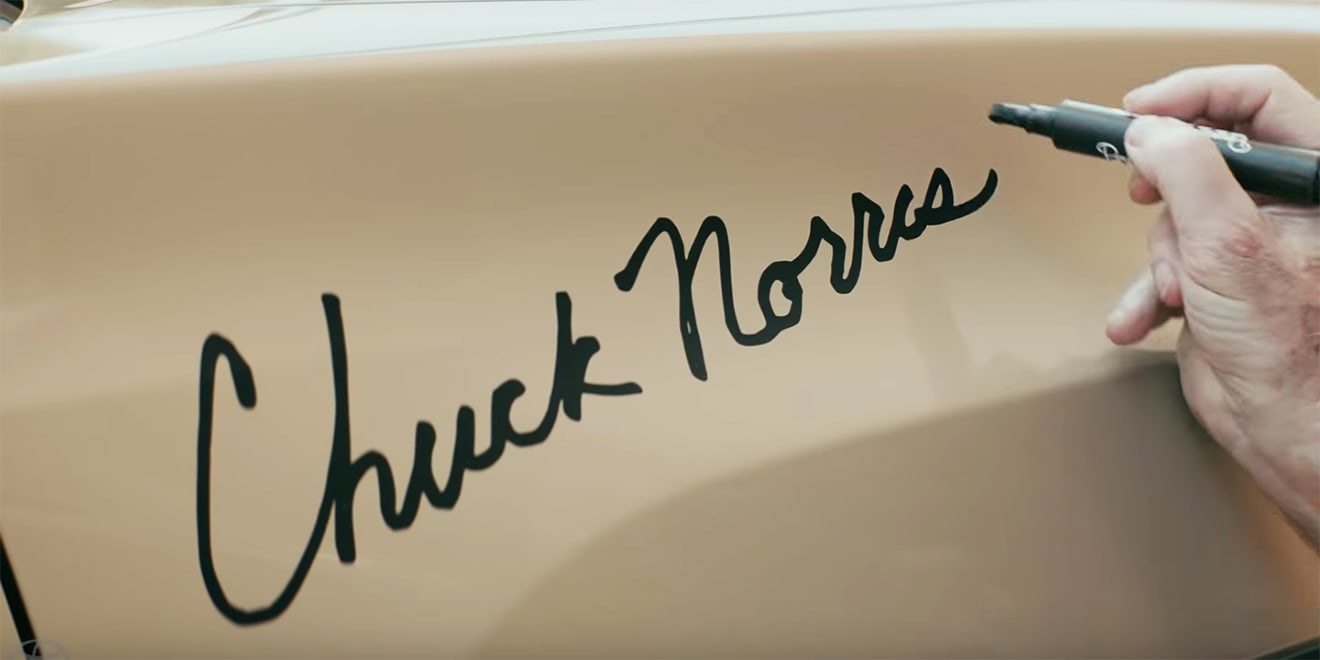 Chuck Norris